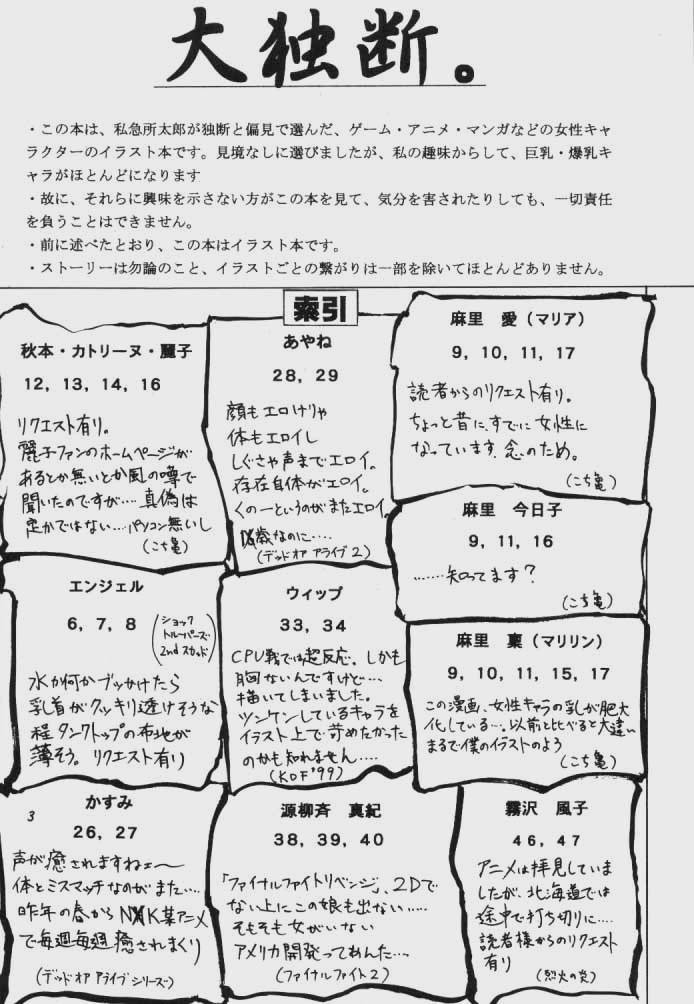 大独断。
・この本は、私急所太郎が独断と偏見で選んだ、ゲーム・アニメ・マンガなどの女性キャ
ラクターのイラスト本です。見境なしに選びましたが、私の趣味からして、巨乳・爆乳キ
ャラがほとんどになります
・故に、それらに興味を示さない方がこの本を見て、気分を害されたりしても、一切責任
を負うことはできません。
・前に述べたとおり、この本はイラスト本です。
・ストーリーは勿論のこと、イラストごとの繋がりは一部を除いてほとんどありません。
索引
秋本・カトリーヌ・麗子
12, 13, 14, 16
リクエスト有り。
麗子ファンのホームページが
あるとか無いとか風の噂で
聞いたのですが…. 真偽は
定かではない…パソコン無いし
(こち亀)
あやね
28, 29
顔もエロけりゃ
体もエロイし
しぐさや声までエロイ。
存在自体がエロイ。
くの一というのがまたエロイ。
歳なのに….
(デッド オア アライブ 2)
麻里 愛(マリア)
9, 10, 11, 17
読者からのリクエスト有り。
ちょっと昔に、すでに女性に
なっています. 念のため。
(こち亀)
麻里 今日子
9, 11, 16
……知ってます?
(こち亀)
エンジェル
6, 7, 8
(ショック
トルーパーズ
2nd スカッド)
水か何かブッかけたら
乳首がクッキリ透けそうな
程タンクトップの布地が
薄そう。リクエスト有り
ウィップ
33, 34
CPU戦では超反応、しかも
胸ないんですけど…
描いてしまいました。
ツンケンしているキャラを
イラスト上で苛めたかった
のかも知れません….
(KOF'99)
麻里 稟(マリリン)
9, 10, 11, 15, 17
この漫画、女性キャラの乳が肥大
化している…。以前と比べると大違い
まるで僕のイラストのよう
(こち亀)
3
かすみ
26, 27
声が癒されますねェ〜
体とミスマッチなのがまた….
昨年の春からNXK某アニメ
で毎週毎週癒されまくり
(デッド オア アライブ シリーズ)
源柳斉 真紀
38, 39, 40
「ファイナルファイトリベンジ」、2Dで
ない上にこの娘も出ない…
そもそも女がいない
アメリカ開発ってあんた…
(ファイナルファイト2)
霧沢 風子
46, 47
アニメは拝見していま
したが、北海道では
途中で打ち切りに….
読者様からのリクエスト
有り
(烈火の炎)